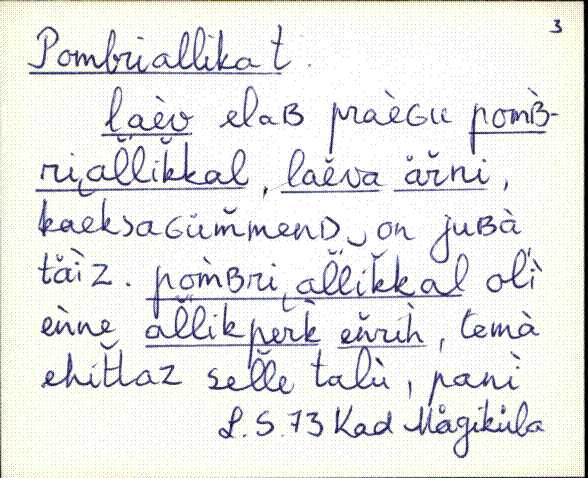 3
Pombriallikat.
laèv elaB praèGu pom̀B-
riʿal̆lik̆kal, laĕva är̆ni,
kaeksaGüm̆menD on juBà
täìz. pom̀Bri al̆lik̆kal olì
eǹne al̆likper̀k eǹ̆rih̀, temà
ehit̆taz sel̆le talù, panì
L.S.73 Kad Mägiküla